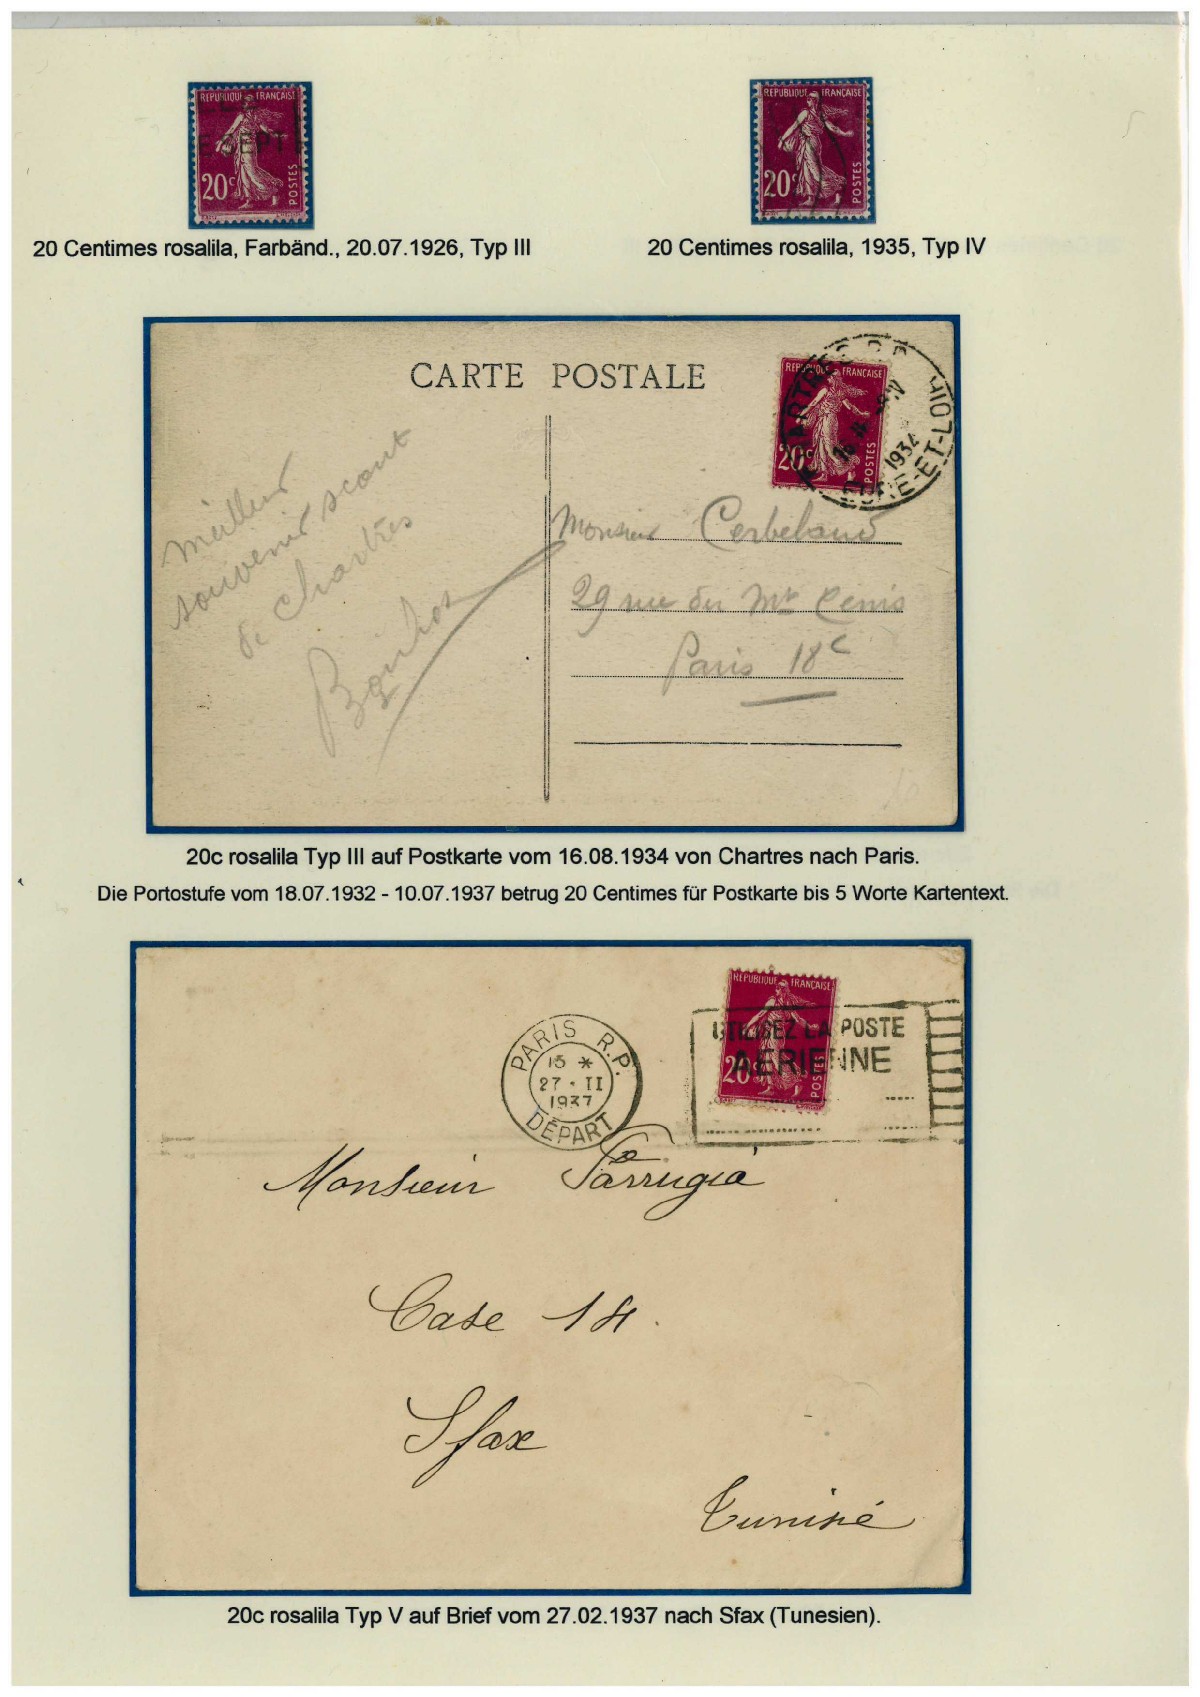 REPUBLIQUE FRANÇAISE
E SEPT
20c
POSTES
REPUBLIQUE FRANÇAISE
20c
POSTES
20 Centimes rosalila, Farbänd., 20.07.1926, Typ III
20 Centimes rosalila, 1935, Typ IV
CARTE POSTALE
REPUBLIQUE FRANÇAISE
20c
POSTES
CHARTRES
16
1934
EURE-ET-LOIR
meilleur
souvenir scout
de Chartres
Monsieur Cerbelaud
29 rue du Mt Cenis
Paris 18e
20c rosalila Typ III auf Postkarte vom 16.08.1934 von Chartres nach Paris.
Die Portostufe vom 18.07.1932 - 10.07.1937 betrug 20 Centimes für Postkarte bis 5 Worte Kartentext.
REPUBLIQUE FRANÇAISE
20c
POSTES
PARIS R.P.
15 *
27 - II
1937
DÉPART
UTILISEZ LA POSTE
AERIENNE
Monsieur Farrugia
Case 14.
Sfax
Tunisie
20c rosalila Typ V auf Brief vom 27.02.1937 nach Sfax (Tunesien).